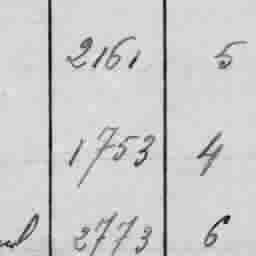 2161 5
1753 4
2773 6